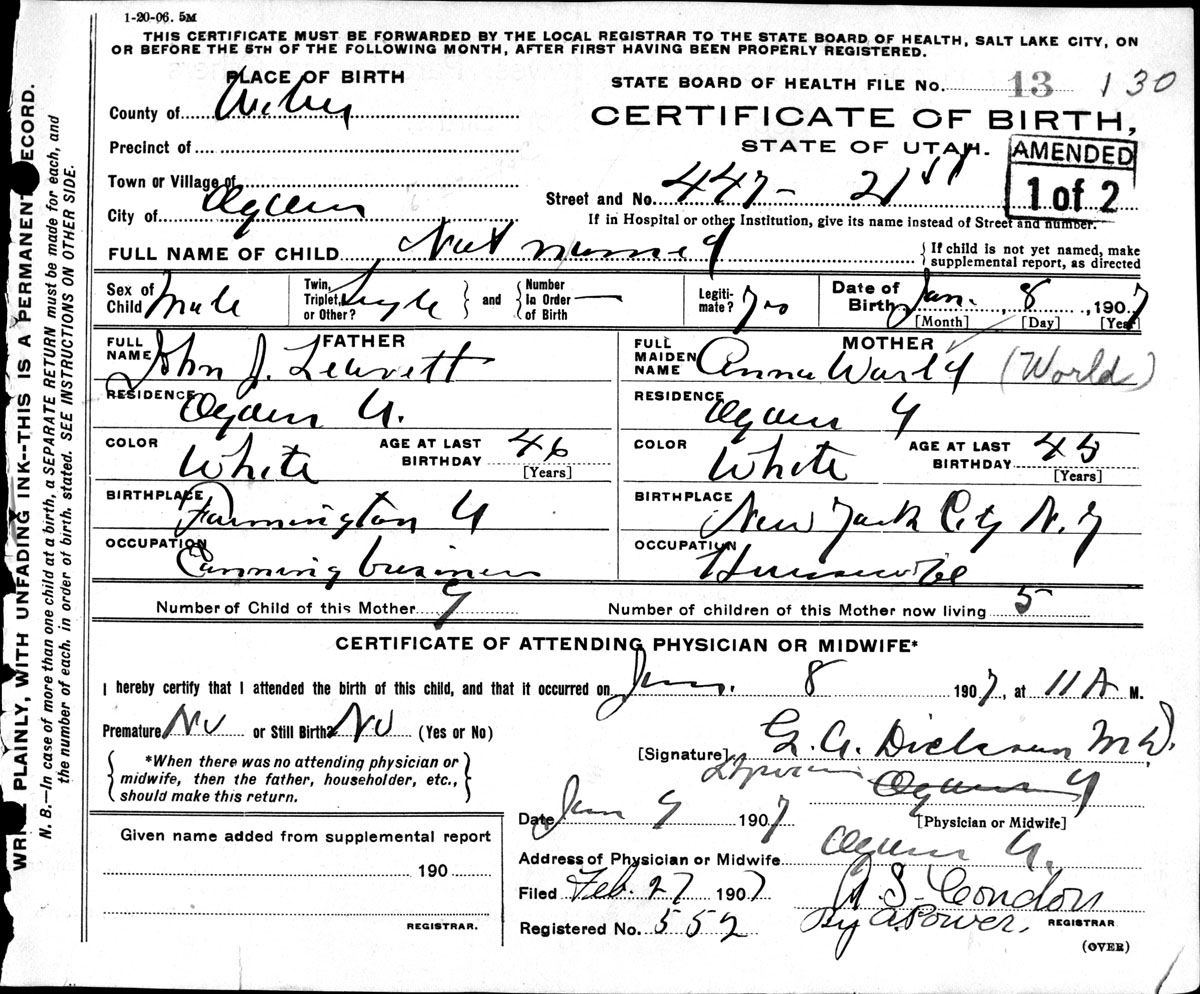 1-20-06. 5M
THIS CERTIFICATE MUST BE FORWARDED BY THE LOCAL REGISTRAR TO THE STATE BOARD OF HEALTH, SALT LAKE CITY, ON
OR BEFORE THE 5TH OF THE FOLLOWING MONTH, AFTER FIRST HAVING BEEN PROPERLY REGISTERED.
PLACE OF BIRTH
STATE BOARD OF HEALTH FILE No. 13 130
County of Weber
CERTIFICATE OF BIRTH,
Precinct of
STATE OF UTAH.
AMENDED
1 of 2
Town or Village of
Street and No. 447- 21st
City of Ogden
If in Hospital or other Institution, give its name instead of Street and number.
FULL NAME OF CHILD Not named
If child is not yet named, make
supplemental report, as directed
Sex of Child Male
Twin, Triplet, or Other? Single and Number In Order of Birth —
Legitimate? Yes
Date of Birth Jan. 8, 1907
[Month] [Day] [Year]
FATHER
FULL NAME John J. Leavett
RESIDENCE Ogden U.
COLOR White
AGE AT LAST BIRTHDAY 46
[Years]
BIRTHPLACE Farmington U
OCCUPATION Canning business
MOTHER
FULL MAIDEN NAME Anna (World)
RESIDENCE Ogden U
COLOR White
AGE AT LAST BIRTHDAY 45
[Years]
BIRTHPLACE New York City N.Y
OCCUPATION Housewife
Number of Child of this Mother 9
Number of children of this Mother now living 5
CERTIFICATE OF ATTENDING PHYSICIAN OR MIDWIFE*
I hereby certify that I attended the birth of this child, and that it occurred on Jan. 8 1907, at 11 A M.
Premature No or Still Birth? No (Yes or No)
*When there was no attending physician or
midwife, then the father, householder, etc.,
should make this return.
[Signature] E. G. Dickson M.D.
Ogden U
Date Jan 9 1907
[Physician or Midwife]
Given name added from supplemental report
190
REGISTRAR.
Address of Physician or Midwife Ogden U.
Filed Feb. 27 1907 A S. Condon
Registered No. 552 By A. Power. REGISTRAR
(OVER)
WRITE PLAINLY, WITH UNFADING INK--THIS IS A PERMANENT RECORD.
N. B.—In case of more than one child at a birth, a SEPARATE RETURN must be made for each, and
the number of each, in order of birth, stated. SEE INSTRUCTIONS ON OTHER SIDE.